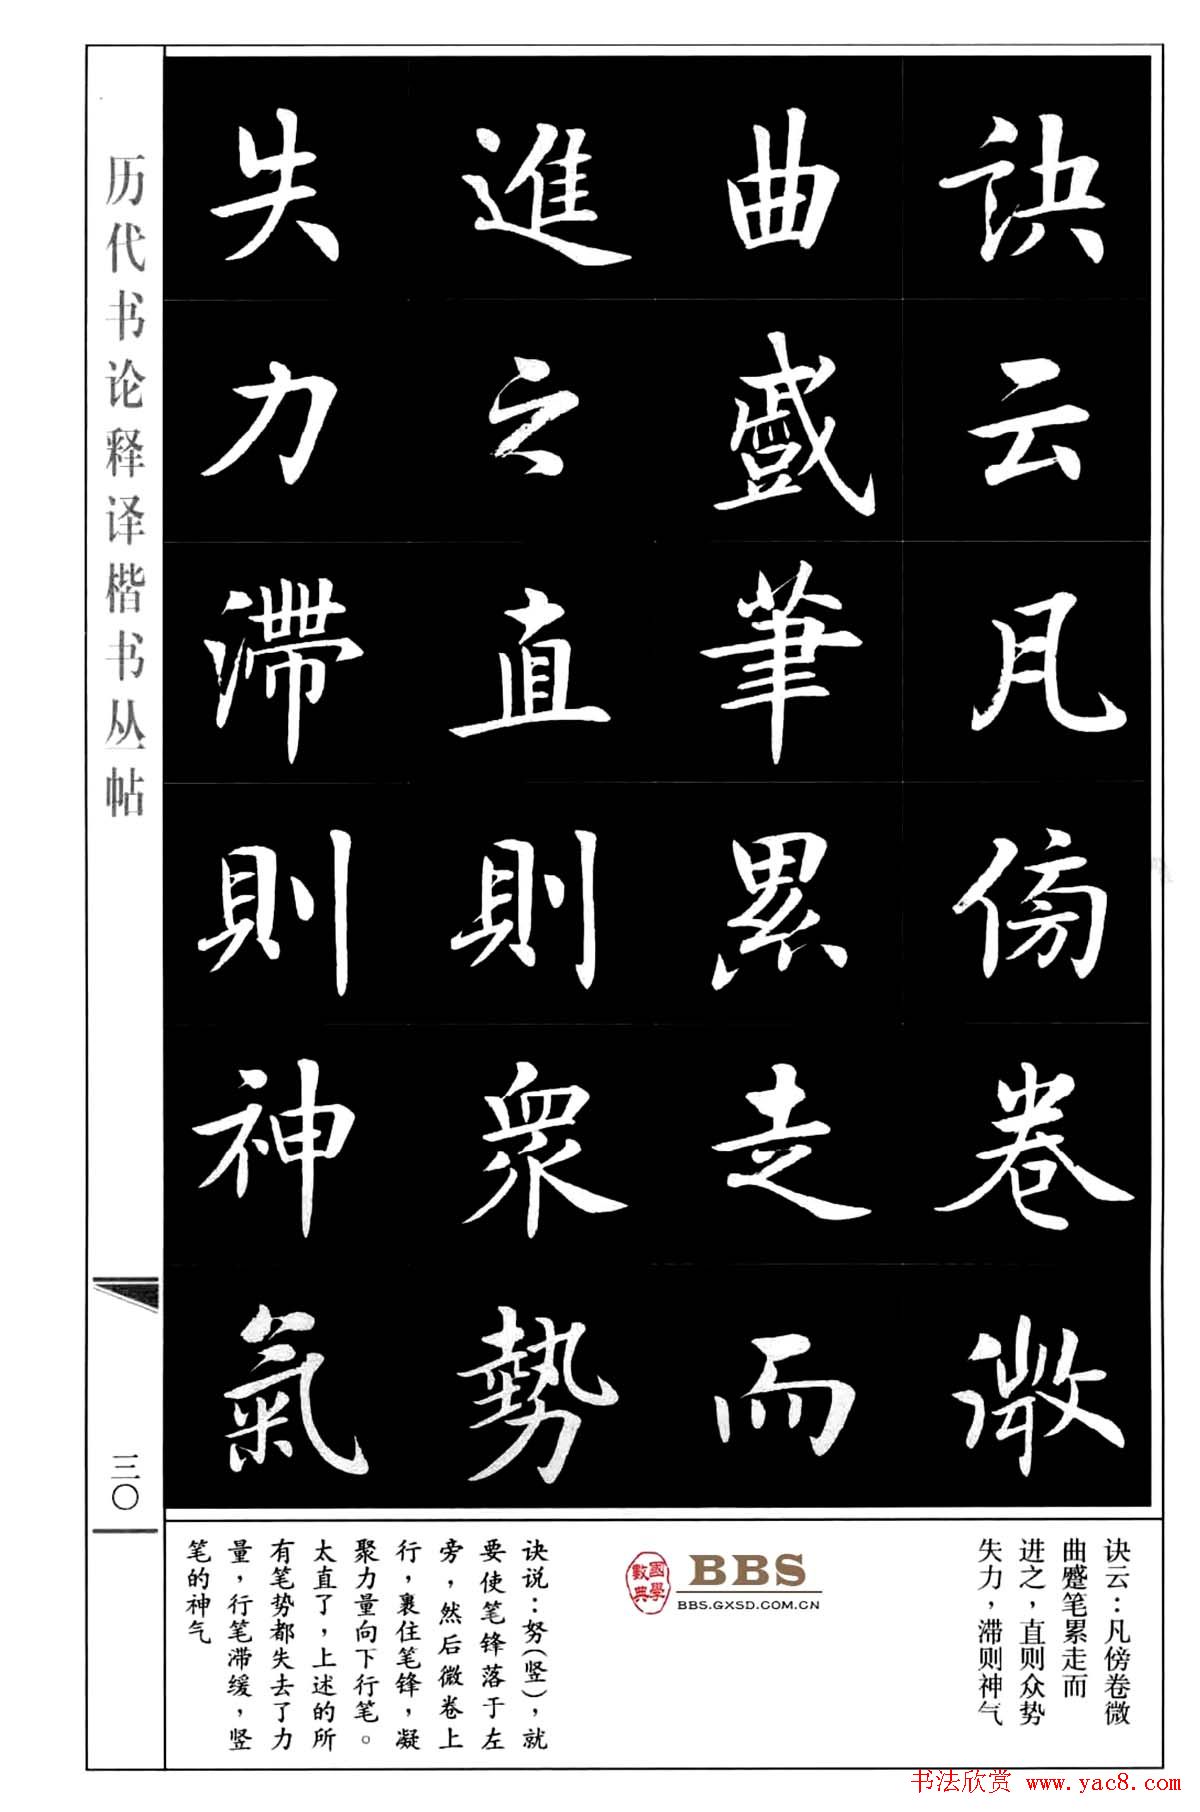 訣云凡傍卷微
曲蹙筆累走而
進之直則衆勢
失力滯則神氣
历代书论释译楷书丛帖
三〇
诀云：凡傍卷微
曲蹙笔累走而
进之，直则众势
失力，滞则神气
國學
數典
BBS
BBS.GXSD.COM.CN
诀说：努(竖)，就
要使笔锋落于左
旁，然后微卷上
行，裹住笔锋，凝
聚力量向下行笔。
太直了，上述的所
有笔势都失去了力
量，行笔滞缓，竖
笔的神气
书法欣赏 www.yac8.com